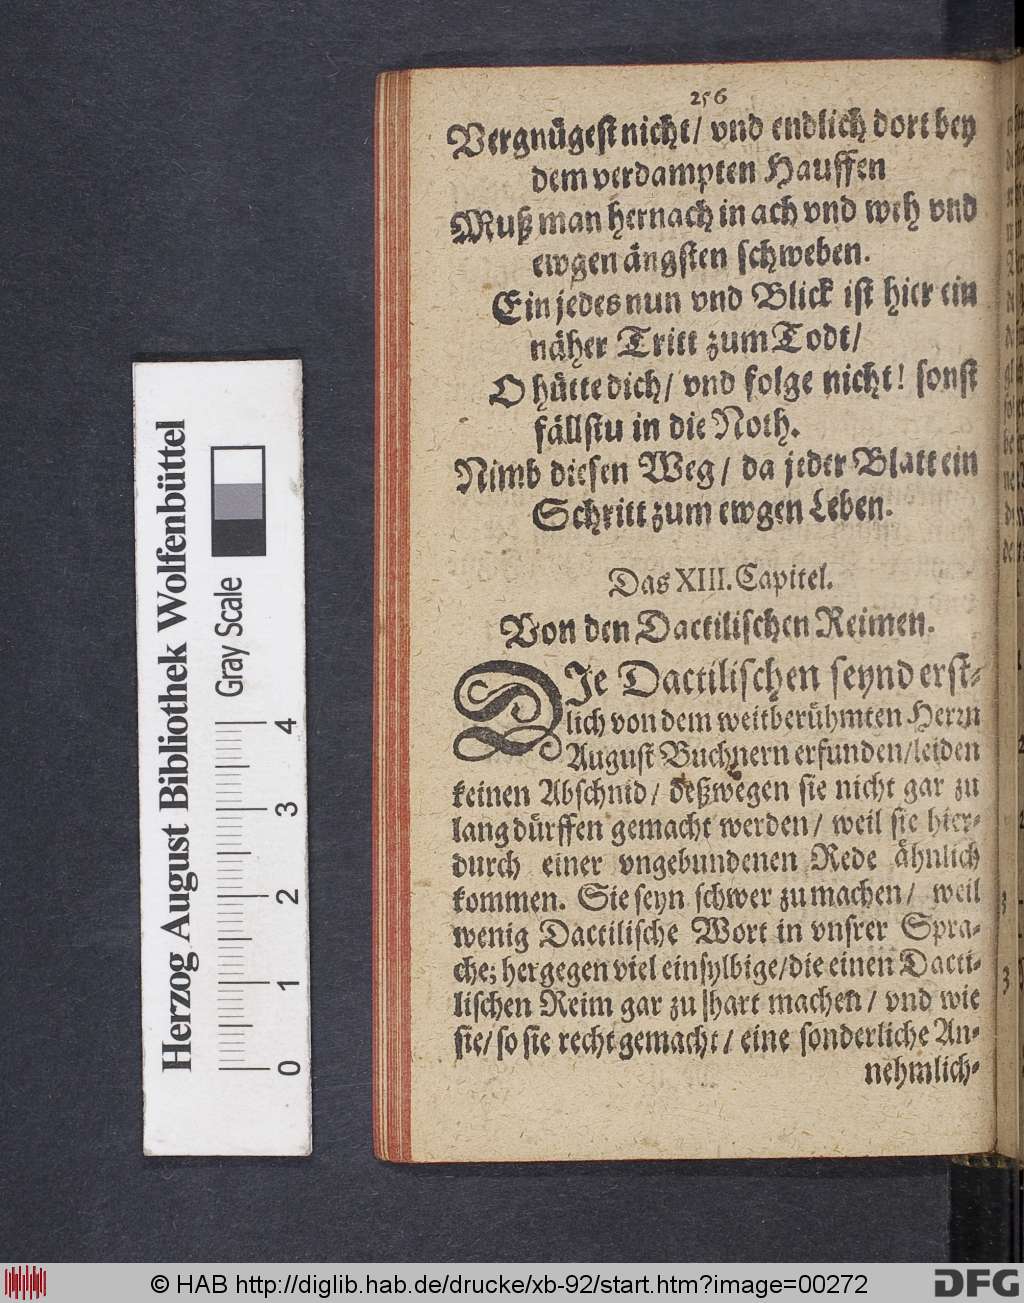 256
Vergnügest nicht/ vnd endlich dort bey
dem verdampten Hauffen
Muß man hernach in ach vnd weh vnd
ewgen ängsten schweben.
Ein jedes nun vnd Blick ist hier ein
näher Tritt zum Todt/
O hütte dich/ vnd folge nicht! sonst
fällstu in die Noth.
Nimb diesen Weg/ da jeder Blatt ein
Schritt zum ewgen Leben.
Das XIII. Capitel.
Von den Dactilischen Reimen.
DIe Dactilischen seynd erst-
lich von dem weitberühmten Herrn
August Buchnern erfunden/ leiden
keinen Abschnid/ deßwegen sie nicht gar zu
lang dürffen gemacht werden/ weil sie hier-
durch einer vngebundenen Rede ähnlich
kommen. Sie seyn schwer zu machen/ weil
wenig Dactilische Wort in vnsrer Spra-
che; hergegen viel einsylbige/ die einen Dacti-
lischen Reim gar zu hart machen/ vnd wie
sie/ so sie recht gemacht/ eine sonderliche An-
nehmlich-
Herzog August Bibliothek Wolfenbüttel
Gray Scale
0 1 2 3 4
© HAB http://diglib.hab.de/drucke/xb-92/start.htm?image=00272
DFG